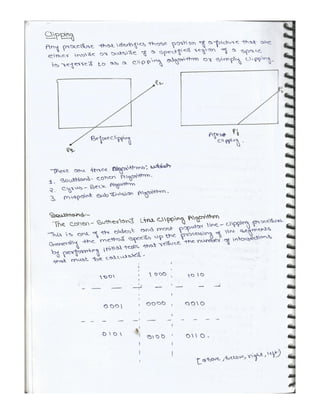 Clipping
Any procedure that identifies those portion of a picture that are
either inside or outside of a specified region of a space
is referred to as a clipping algorithm or simply clipping.
P2
P2
P1
Before Clipping
After Clipping.
There are three Algorithms:
1. Southland-Cohen Algorithm.
2. Cyrus-Beck Algorithm
3. Midpoint subdivision Algorithm.
The Cohen-Sutherland Line Clipping Algorithm
This is one of the oldest and most popular line-clipping procedure
Generally the method speeds up the processing of line segments
by performing initial tests that reduce the number of intersections
that must be calculated.
1001 1000 1010
0001 0000 0010
0101 0100 0110.
[above, below, right, left]